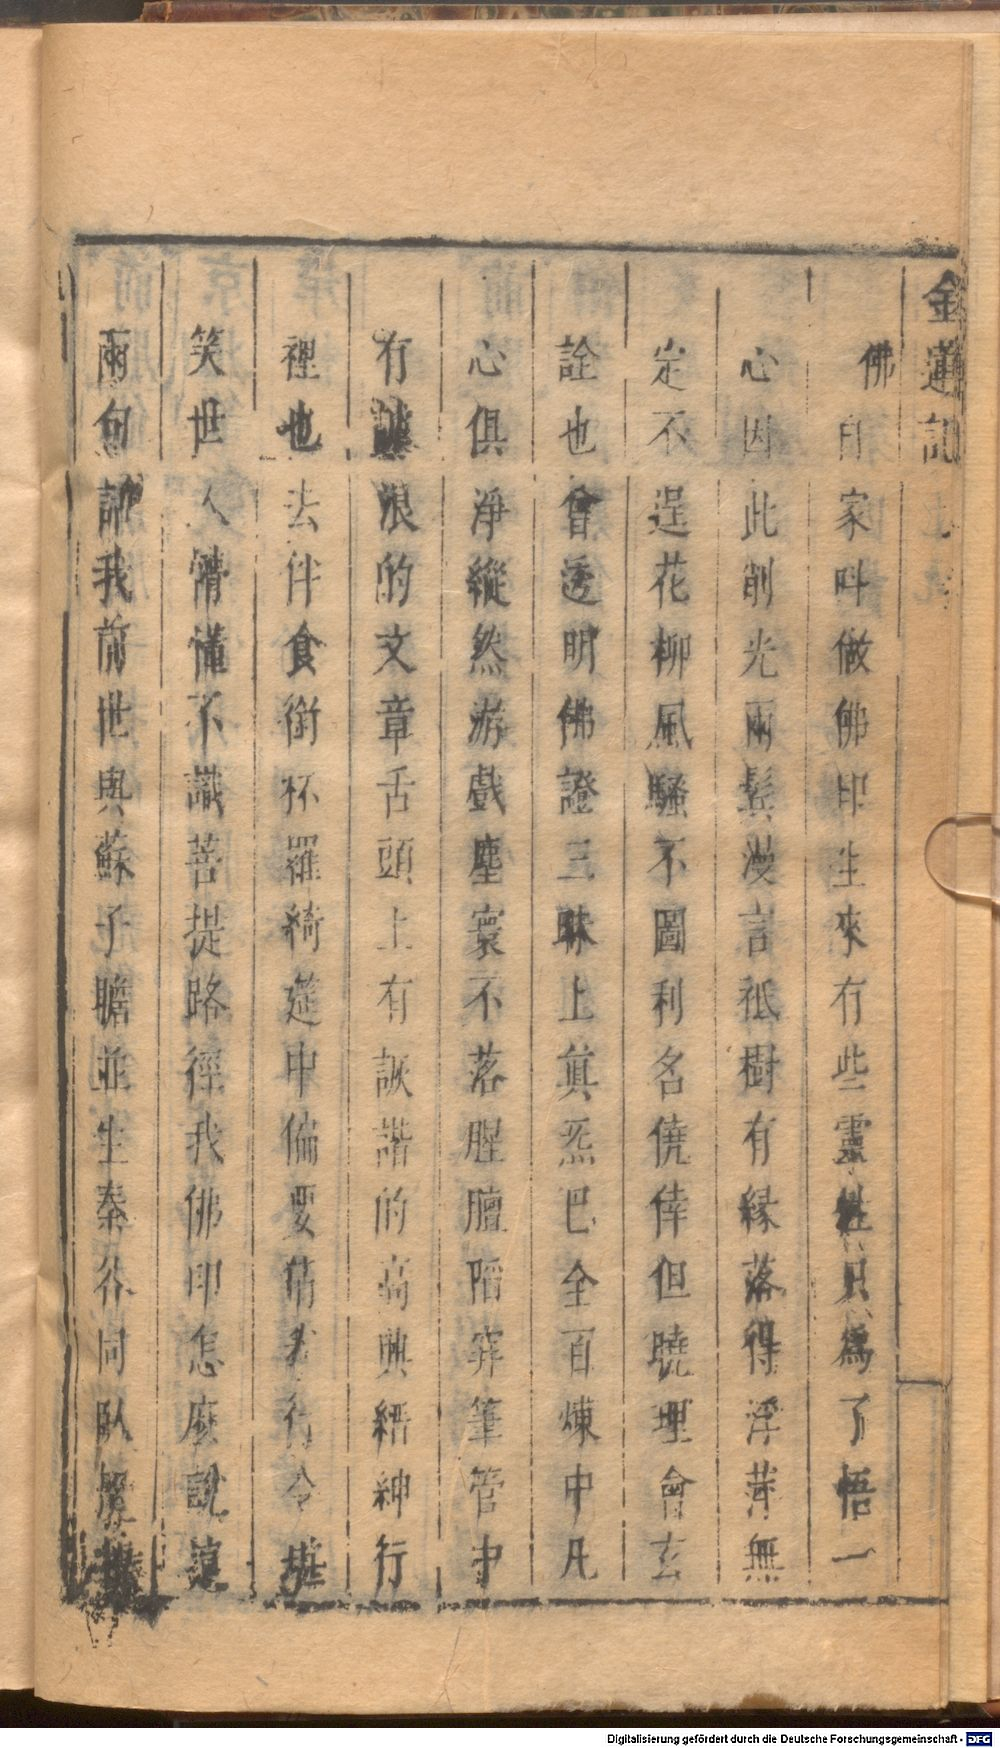 金蓮記
佛印家叫做佛印生來有些靈性只爲了悟一
心因此削光兩鬢漫言祗樹有緣落得浮萍無
定不逞花柳風騷不圖利名僥倖但曉理會玄
詮也會透明佛證三昧上眞炁巴全百煉中凡
心俱淨縱然游戲塵寰不落腥膻陷穽筆管中
有 浪的文章舌頭上有詼諧的高興縉紳行
裡也去伴食銜杯羅綺筵中偏要猜 行令
笑世人懵懂不識菩提路徑我佛印怎麼說這
兩句 我前世與蘇子瞻並生秦谷同臥
Digitalisierung gefördert durch die Deutsche Forschungsgemeinschaft - DFG